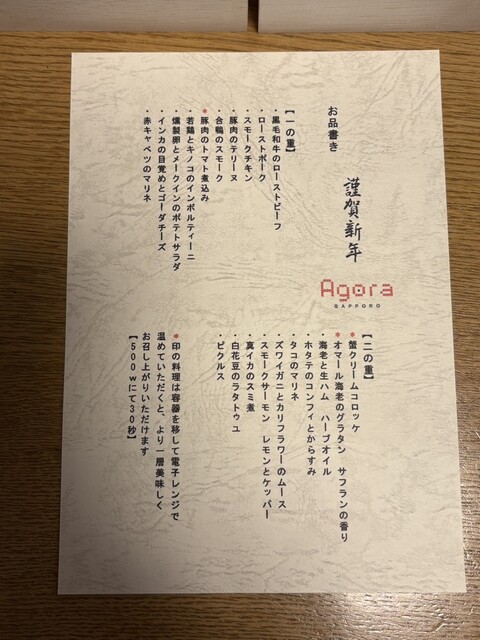 お品書き
謹賀新年
Agora
SAPPORO
【一の重】
・黒毛和牛のローストビーフ
・ローストポーク
・スモークチキン
・豚肉のテリーヌ
・合鴨のスモーク
*豚肉のトマト煮込み
・若鶏とキノコのインボルティーニ
・燻製卵とメークインのポテトサラダ
・インカの目覚めとゴーダチーズ
・赤キャベツのマリネ
【二の重】
*蟹クリームコロッケ
*オマール海老のグラタン サフランの香り
・海老と生ハム ハーブオイル
・ホタテのコンフィとからすみ
・タコのマリネ
・ズワイガニとカリフラワーのムース
・スモークサーモン レモンとケッパー
・真イカのスミ煮
・白花豆のラタトゥユ
・ピクルス
*印の料理は容器を移して電子レンジで
温めていただくと、より一層美味しく
お召し上がりいただけます
【500wにて30秒】